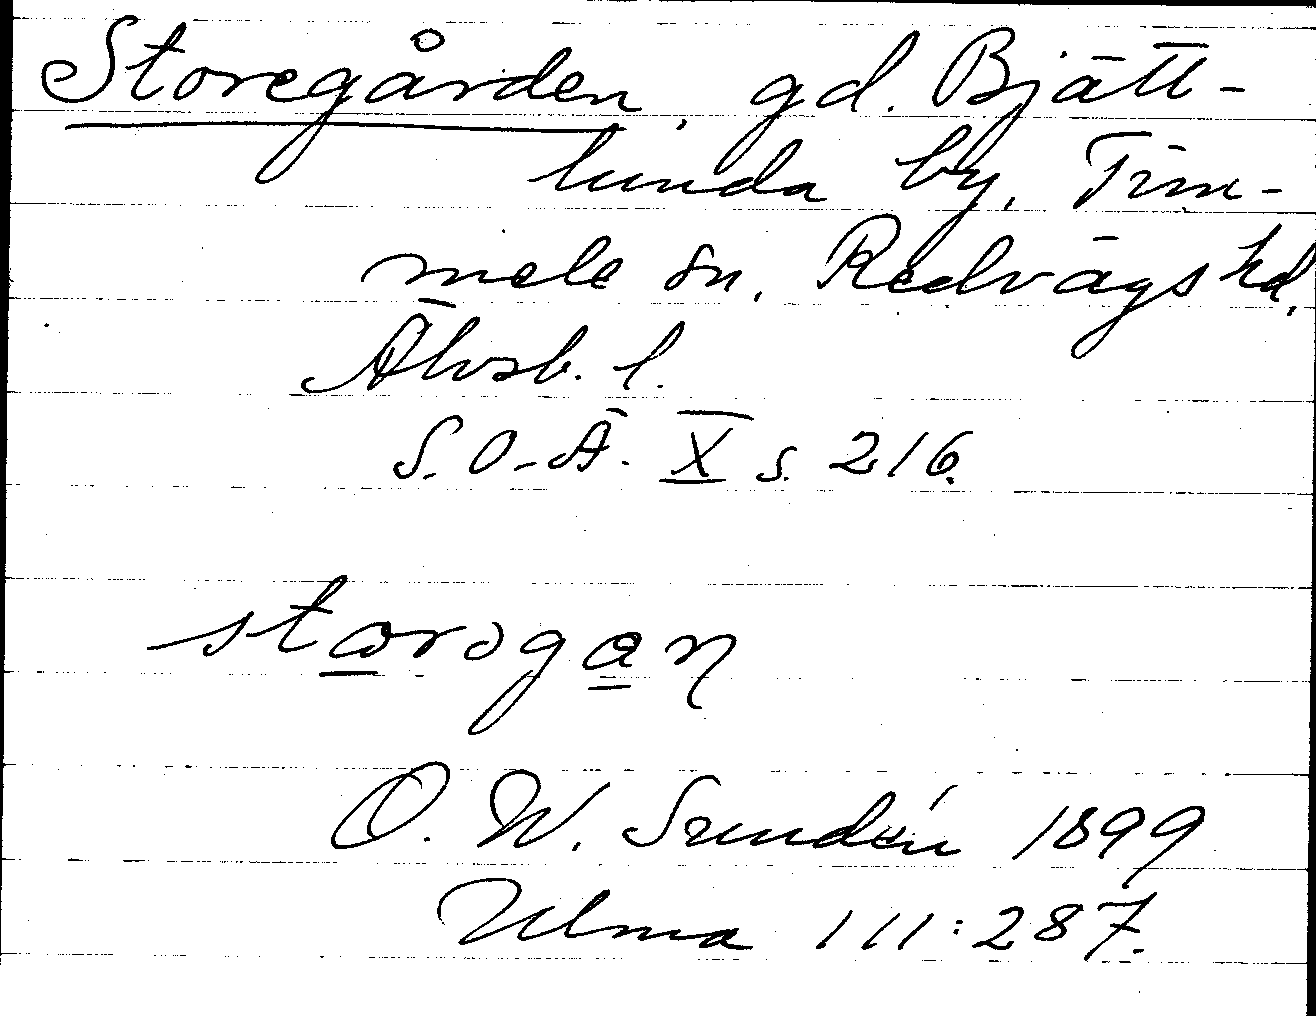 Storegården, gd. Bjätt-
lunda by, Tim-
mele sn, Redvägs hd,
Älvsb. l.
S.O-Ä. X s. 216.
storəgan
O. W. Sundén 1899
Ulma 111:287.